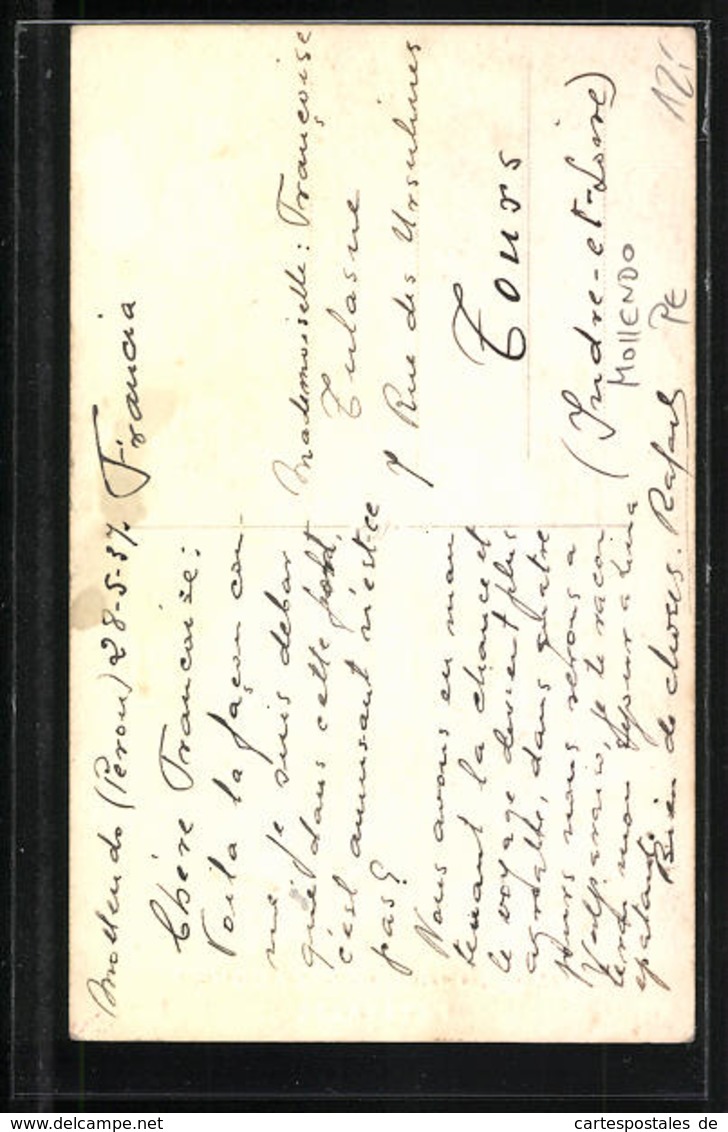 Mollendo (Perou) 28-5-37. Francia
Chère Françoise:
Voila la façon con
ne je suis debar
qué dans cette port,
c'est amusant n'est-ce
pas?
Nous avons eu man
tenant la chance et
le voyage devient plus
agréable, dans quatre
jours nous serons a
Valparaiso, je te racon
terai mon sejour a Lima
epatant.
Bien de choses. Rafael
Mademoiselle: Françoise
Tulasne
7 Rue des Ursulines
Tours
(Indre-et-Loire)
MOllENDO
PE
12.
delcampe.net
cartespostales de